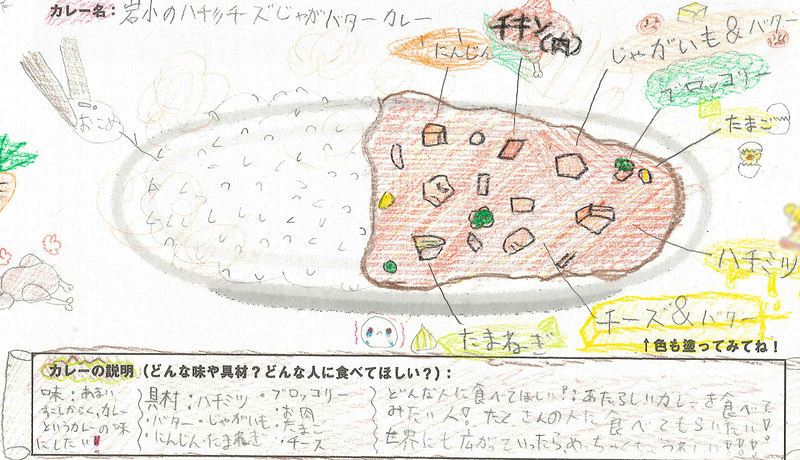 カレー名：岩小のハチミツチーズじゃがバターカレー
にんじん
チキン(肉)
じゃがいも&バター
ブロッコリー
たまご
おこめ
ハチミツ
チーズ&バター
たまねぎ
↑色も塗ってみてね！
カレーの説明（どんな味や具材？どんな人に食べてほしい？）：
味：あまい
すこしからく、カレー
というカレーの味
にしたい!
具材：ハチミツ・ブロッコリー
・お肉
・バター・じゃがいも・たまご
・にんじん・たまねぎ・チーズ
どんな人に食べてほしい?：あたらしいカレーを食べて
みたい人! たくさんの人に食べてもらいたい!
世界にも広がっていったら、めっちゃくちゃうれしい!!!